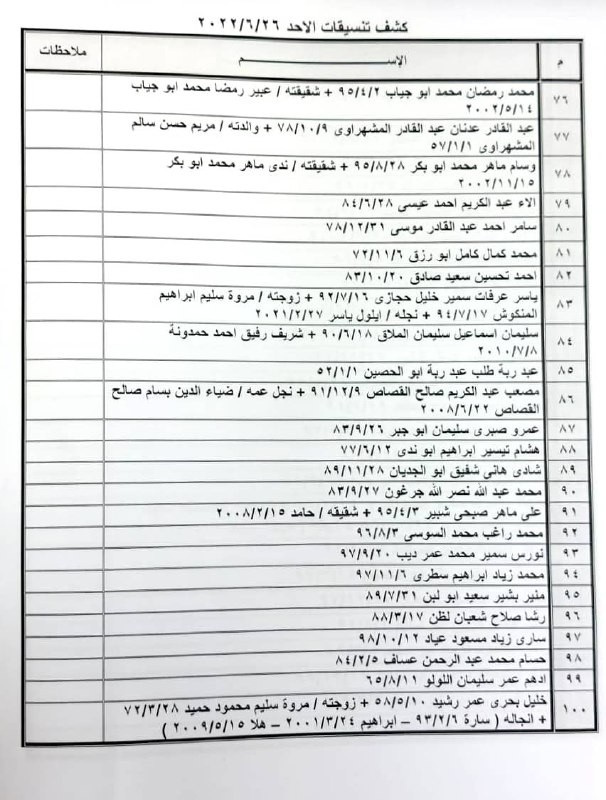 كشف تنسيقات الاحد ٢٠٢٢/٦/٢٦
م الإســـــــم ملاحظات
٧٦ محمد رمضان محمد ابو جياب ٩٥/٤/٢ + شقيقته / عبير رمضا محمد ابو جياب
٢٠٠٢/٥/١٤
٧٧ عبد القادر عدنان عبد القادر المشهراوى ٧٨/١٠/٩ + والدته / مريم حسن سالم
المشهراوى ٥٧/١/١
٧٨ وسام ماهر محمد ابو بكر ٩٥/٨/٢٨ + شقيقته / ندى ماهر محمد ابو بكر
٢٠٠٢/١١/١٥
٧٩ الاء عبد الكريم احمد عيسى ٨٤/٦/٢٨
٨٠ سامر احمد عبد القادر موسى ٧٨/١٢/٣١
٨١ محمد كمال كامل ابو رزق ٧٢/١١/٦
٨٢ احمد تحسين سعيد صادق ٨٣/١٠/٢٠
٨٣ ياسر عرفات سمير خليل حجازى ٩٢/٧/١٦ + زوجته / مروة سليم ابراهيم
المنكوش ٩٤/٧/١٧ + نجله / ايلول ياسر ٢٠٢١/٢/٢٧
٨٤ سليمان اسماعيل سليمان الملاق ٩٠/٦/١٨ + شريف رفيق احمد حمدونة
٢٠١٠/٧/٨
٨٥ عبد ربة طلب عبد ربة ابو الحصين ٥٢/١/١
٨٦ مصعب عبد الكريم صالح القصاص ٩١/١٢/٩ + نجل عمه / ضياء الدين بسام صالح
القصاص ٢٠٠٨/٦/٢٢
٨٧ عمرو صبرى سليمان ابو جبر ٨٣/٩/٢٦
٨٨ هشام تيسير ابراهيم ابو ندى ٧٧/٦/١٢
٨٩ شادى هانى شفيق ابو الجديان ٨٩/١١/٢٨
٩٠ محمد عبد الله نصر الله جرغون ٨٣/٩/٢٧
٩١ على ماهر صبحى شبير ٩٥/٤/٣ + شقيقه / حامد ٢٠٠٨/٢/١٥
٩٢ محمد راغب محمد السوسى ٩٦/٨/٣
٩٣ نورس سمير محمد عمر ديب ٩٧/٩/٢٠
٩٤ محمد زياد ابراهيم سطرى ٩٧/١١/٦
٩٥ منير بشير سعيد ابو لبن ٨٩/٧/٣١
٩٦ رشا صلاح شعبان لظن ٨٨/٣/١٧
٩٧ سارى زياد مسعود عياد ٩٨/١٠/١٢
٩٨ حسام محمد عبد الرحمن عساف ٨٤/٢/٥
٩٩ ادهم عمر سليمان اللولو ٦٥/٨/١١
١٠٠ خليل بحرى عمر رشيد ٥٨/٥/١٠ + زوجته / مروة سليم محمود حميد ٧٢/٣/٢٨
+ انجاله ( سارة ٩٣/٢/٦ – ابراهيم ٢٠٠١/٣/٢٤ – هلا ٢٠٠٩/٥/١٥ )